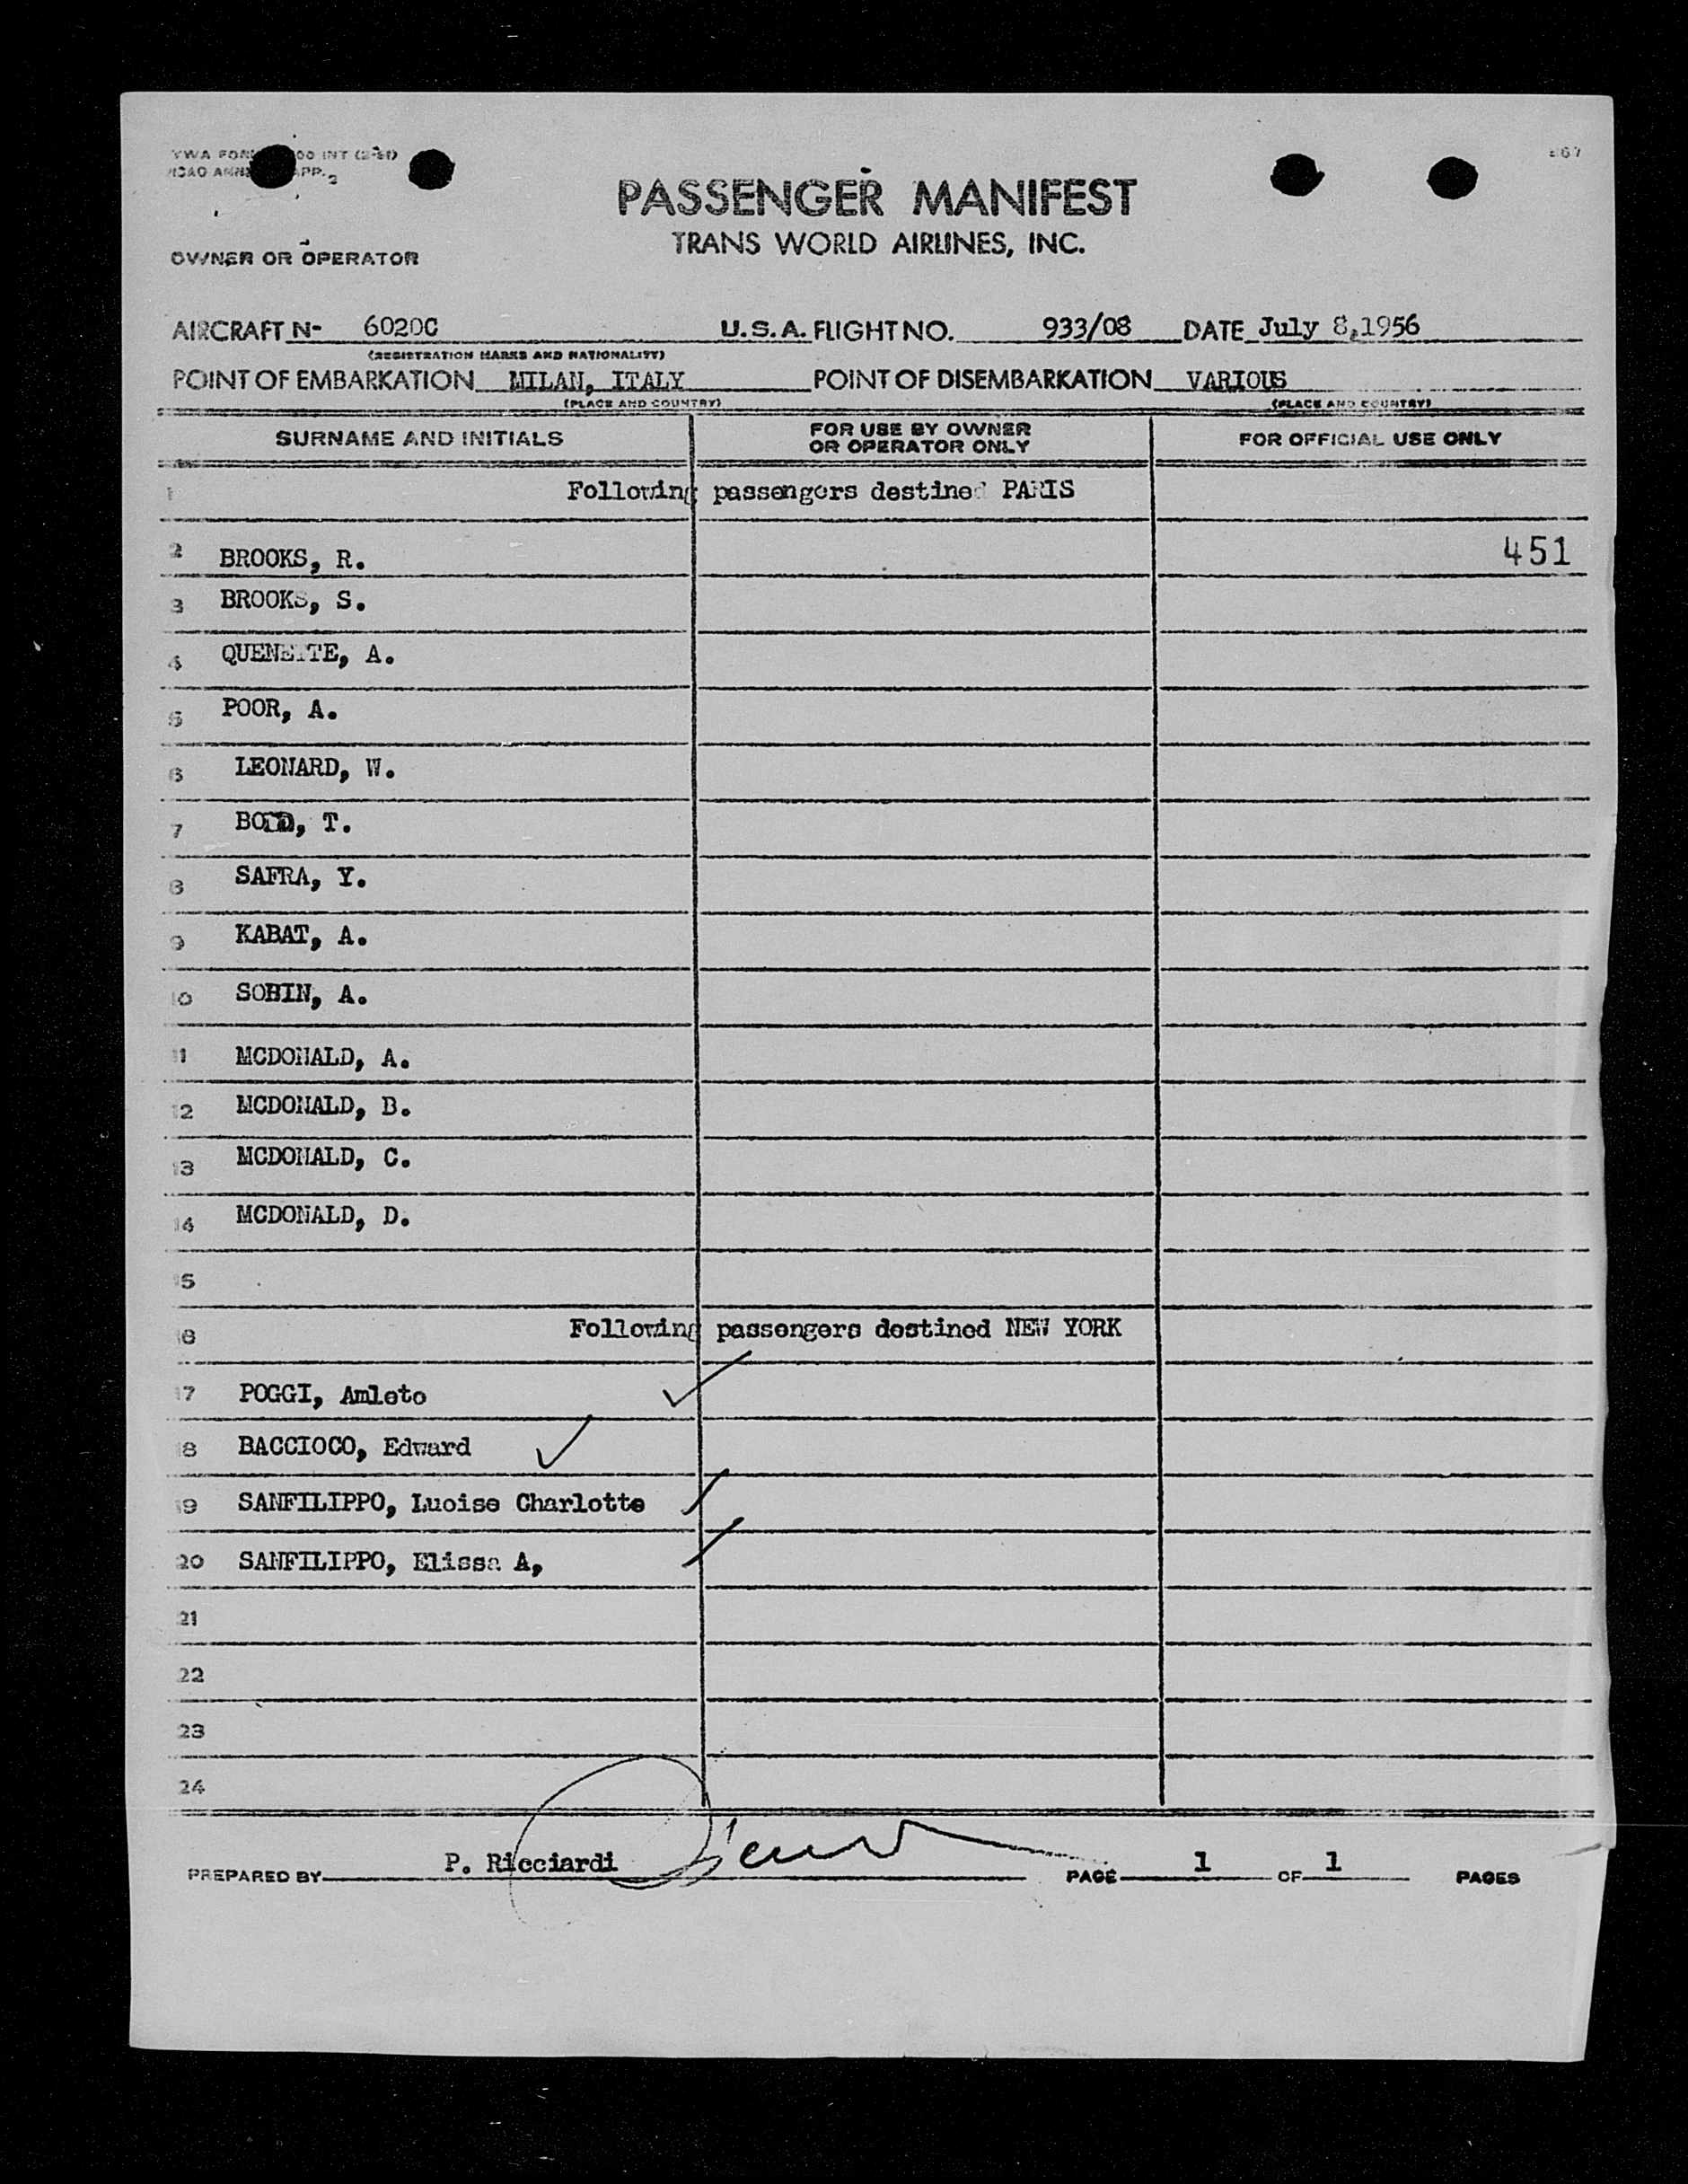 TWA FORM 00 INT (2-51)
ICAO ANNE APP. 2
PASSENGER MANIFEST
TRANS WORLD AIRLINES, INC.
OWNER OR OPERATOR
AIRCRAFT N- 6020C U.S.A. FLIGHT NO. 933/08 DATE July 8,1956
(REGISTRATION MARKS AND NATIONALITY)
POINT OF EMBARKATION MILAN, ITALY POINT OF DISEMBARKATION VARIOUS
(PLACE AND COUNTRY) (PLACE AND COUNTRY)
SURNAME AND INITIALS FOR USE BY OWNER OR OPERATOR ONLY FOR OFFICIAL USE ONLY
1 Following passengers destined PARIS
2 BROOKS, R. 451
3 BROOKS, S.
4 QUENETTE, A.
5 POOR, A.
6 LEONARD, W.
7 T.
8 SAFRA, Y.
9 KABAT, A.
10 SOBIN, A.
11 MCDONALD, A.
12 MCDONALD, B.
13 MCDONALD, C.
14 MCDONALD, D.
15
16 Following passengers destined NEW YORK
17 POGGI, Amleto
18 BACCIOCO, Edward
19 SANFILIPPO, Luoise Charlotte
20 SANFILIPPO, Elissa A,
21
22
23
24
PREPARED BY P. Ricciardi PAGE 1 OF 1 PAGES